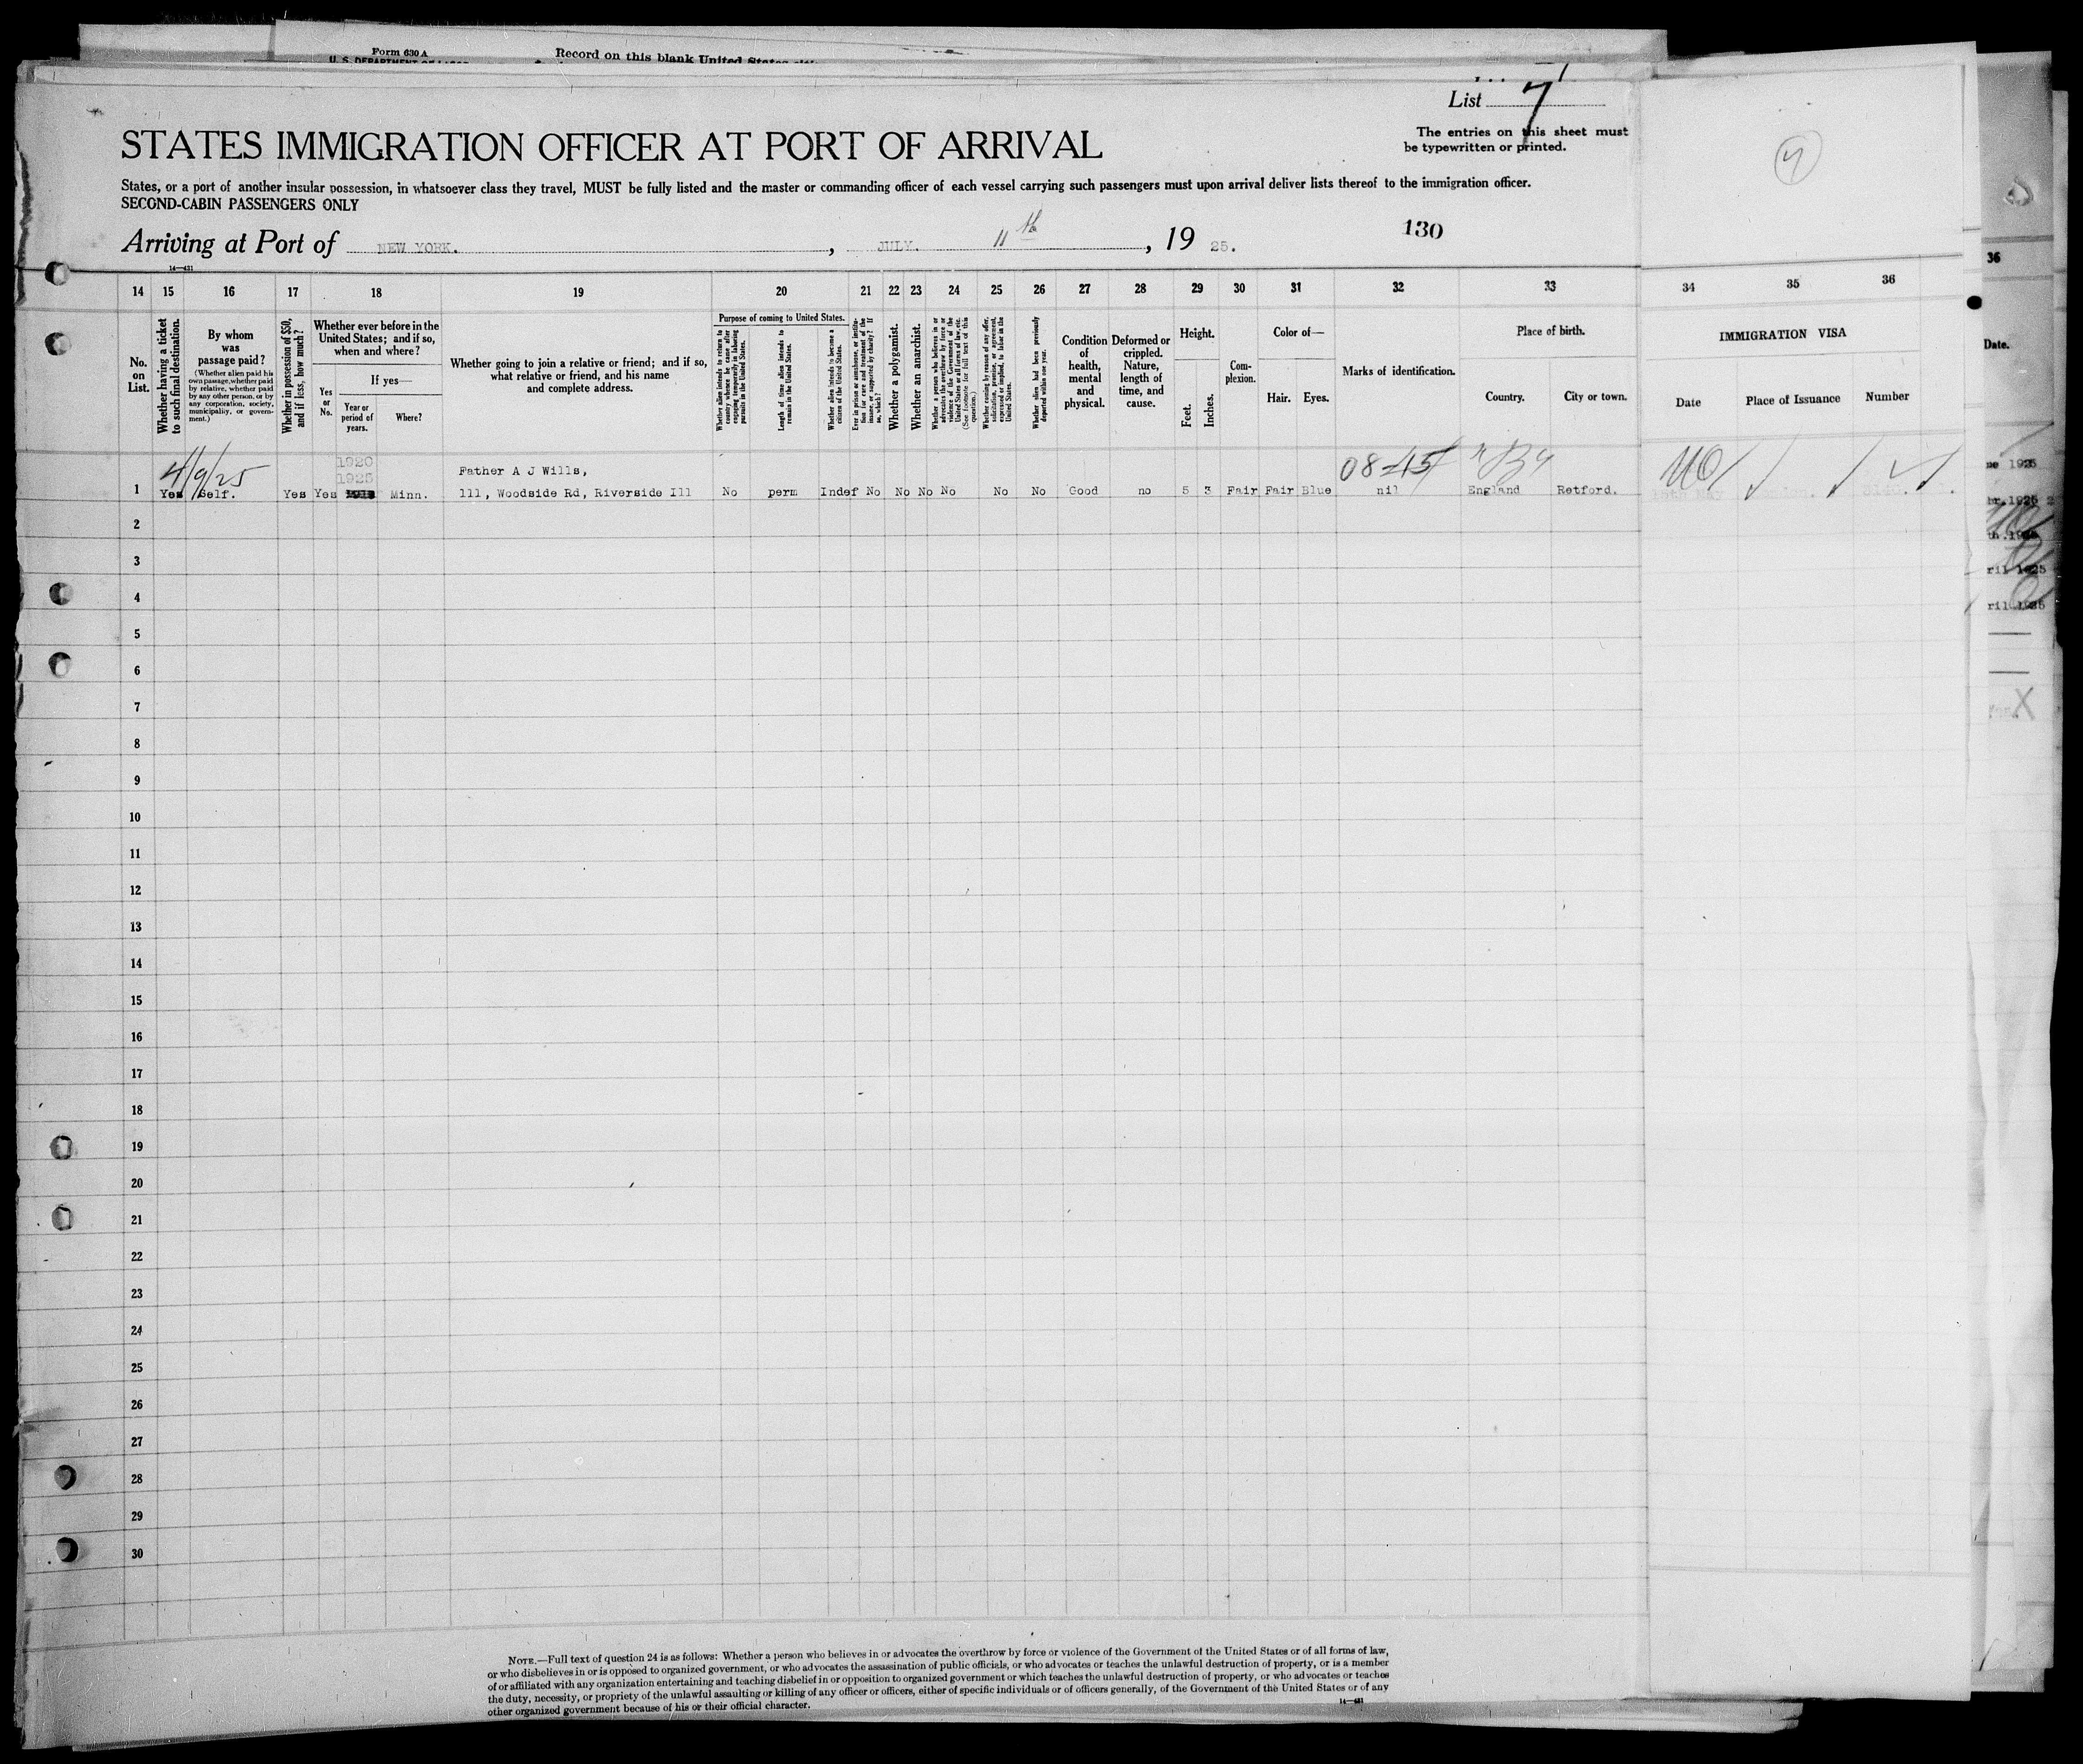 Form 630 A
Record on this blank United States
List 7
The entries on this sheet must
be typewritten or printed.
STATES IMMIGRATION OFFICER AT PORT OF ARRIVAL
States, or a port of another insular possession, in whatsoever class they travel, MUST be fully listed and the master or commanding officer of each vessel carrying such passengers must upon arrival deliver lists thereof to the immigration officer.
SECOND-CABIN PASSENGERS ONLY
130
Arriving at Port of NEW YORK. , JULY. 11th , 19 25.
14—431
14 15 16 17 18 19 20 21 22 23 24 25 26 27 28 29 30 31 32 33 34 35 36
No. on List.
Whether having a ticket to such final destination.
By whom was passage paid?
(Whether alien paid his own passage, whether paid by relative, whether paid by any other person, or by any corporation, society, municipality, or government.)
Whether in possession of $50, and if less, how much?
Whether ever before in the United States; and if so, when and where?
Yes or No.
If yes—
Year or period of years.
Where?
Whether going to join a relative or friend; and if so, what relative or friend, and his name and complete address.
Purpose of coming to United States.
Whether alien intends to return to country whence he came after engaging temporarily in laboring pursuits in the United States.
Length of time alien intends to remain in the United States.
Whether alien intends to become a citizen of the United States.
Ever in prison or almshouse, or institution for care and treatment of the insane, or supported by charity? If so, which?
Whether a polygamist.
Whether an anarchist.
Whether a person who believes in or advocates the overthrow by force or violence of the Government of the United States or all forms of law, etc. (See footnote for full text of this question.)
Whether coming by reason of any offer, solicitation, promise, or agreement, expressed or implied, to labor in the United States.
Whether alien had been previously deported within one year.
Condition of health, mental and physical.
Deformed or crippled. Nature, length of time, and cause.
Height.
Feet. Inches.
Complexion.
Color of—
Hair. Eyes.
Marks of identification.
Place of birth.
Country. City or town.
IMMIGRATION VISA
Date Place of Issuance Number
36
Date.
4/9/25
1920
1925
Father A J Wills,
1 Yes Self. Yes Yes Minn. 111, Woodside Rd, Riverside Ill No perm Indef No No No No No No Good no 5 3 Fair Fair Blue nil England Retford.
2
3
4
5
6
7
8
9
10
11
12
13
14
15
16
17
18
19
20
21
22
23
24
25
26
27
28
29
30
NOTE.—Full text of question 24 is as follows: Whether a person who believes in or advocates the overthrow by force or violence of the Government of the United States or of all forms of law,
or who disbelieves in or is opposed to organized government, or who advocates the assassination of public officials, or who advocates or teaches the unlawful destruction of property, or is a member
of or affiliated with any organization entertaining and teaching disbelief in or opposition to organized government or which teaches the unlawful destruction of property, or who advocates or teaches
the duty, necessity, or propriety of the unlawful assaulting or killing of any officer or officers, either of specific individuals or of officers generally, of the Government of the United States or of any
other organized government because of his or their official character.
14—431